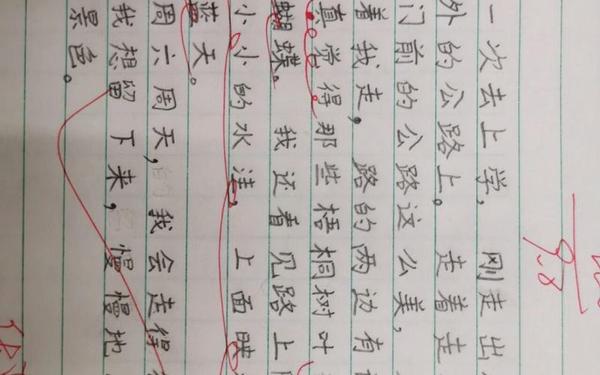 一次去上学，刚走出
外的公路上。走着走
门前的公路这么美，
着我走，路的两边有
真觉得那些梧桐树叶
蝴蝶。我还看见路上
小小的水洼，上面映
蓝天。
周六周天，我会走得
我想留下来，慢慢地
景色。
9.8